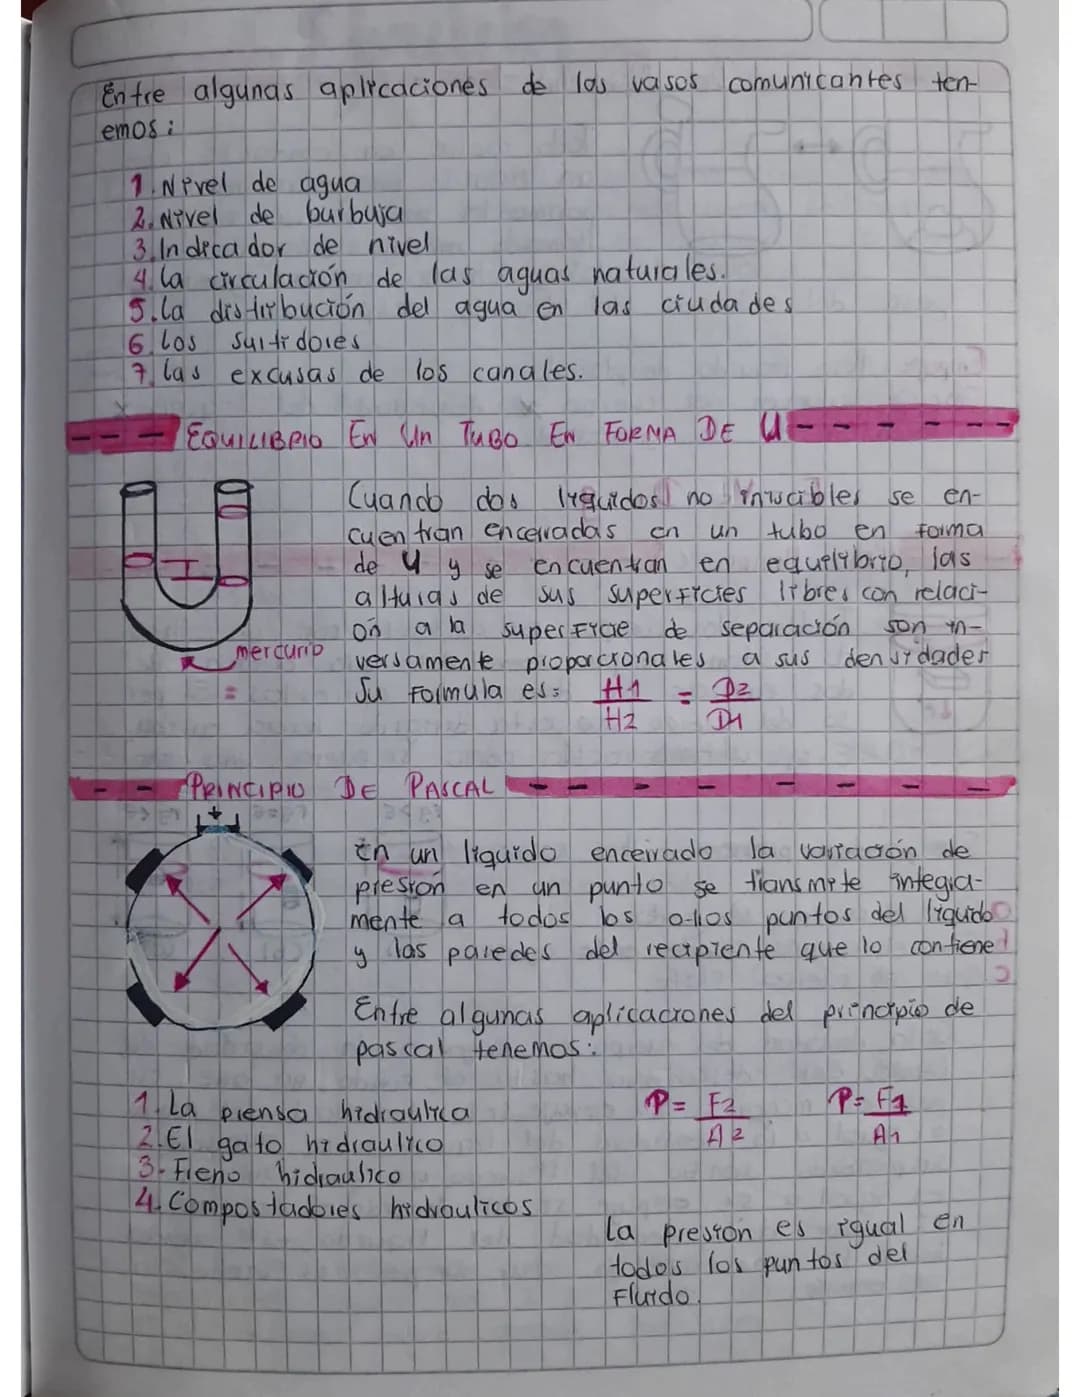 Entre algunas aplicaciones de los vasos comunicantes ten-
emos:
1. Nivel de agua
2. Nivel de burbuja
3. Indicador de nivel
4. La circulación de las aguas naturales.
5. La distirbución del agua en las ciudades
6. Los surtidores
7. Las excusas de los canales.
EQUILIBRIO EN UN TUBO EN FORMA DE U
Cuando dos liquidos no inviscibles se en-
cuentran encerradas en un tubo en forma
de U y se encuentran en equilibrio, las
alturas de sus superficies libres con relaci-
ón a la superficie de separación son in-
versamente proporcionales a sus densidades
Su Formula es: H1/H2 = D2/D1
mercurio
=
PRINCIPIO DE PASCAL
En un liquido encerrado la variación de
presión en un punto se transmite integra-
mente a todos los otros puntos del liquido
y las paredes del recipiente que lo contiene
Entre algunas aplicaciones del principio de
pascal tenemos:
1. La prensa hidraulica
2. El gato hidraulico
3. Freno hidraulico
4. Compostadores hidraulicos
P = F2/A2 P = F1/A1
La presion es igual en
todos los puntos del
Fluido.